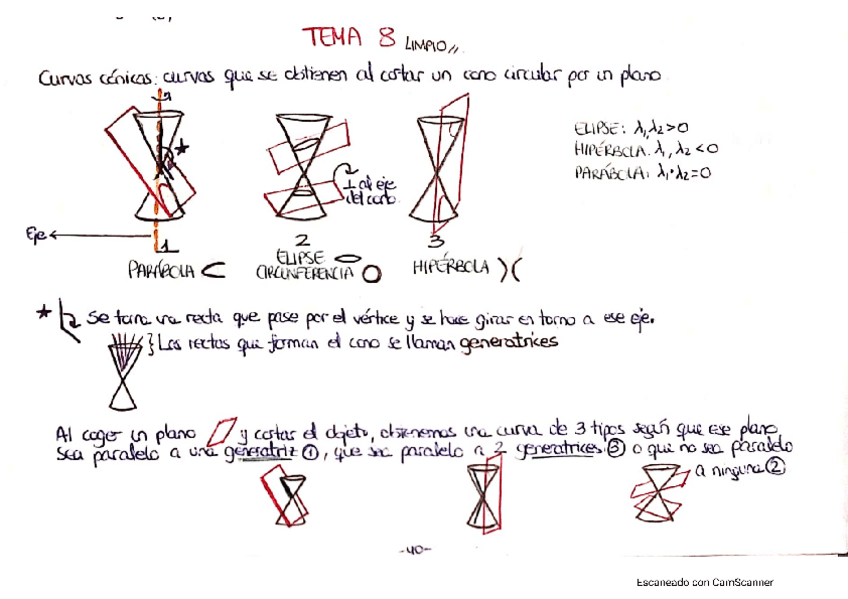 TEMA 8 LIMPIO //
Curvas cónicas: curvas que se obtienen al cortar un cono circular por un plano
ELIPSE: λ₁λ₂>0
HIPÉRBOLA: λ₁, λ₂<0
PARÁBOLA: λ₁·λ₂=0
★
⊥ al eje
del cono
Eje
1
2
3
PARÁBOLA
ELIPSE
CIRCUNFERENCIA
HIPÉRBOLA
★ Se toma una recta que pase por el vértice y se hace girar en torno a ese eje.
} Las rectas que forman el cono se llaman generatrices
Al coger un plano y cortas el objeto, obtenemos una curva de 3 tipos según que ese plano
sea paralelo a una generatriz ①, que sea paralelo a 2 generatrices ③ o que no sea paralelo
a ninguna ②
-40-
Escaneado con CamScanner